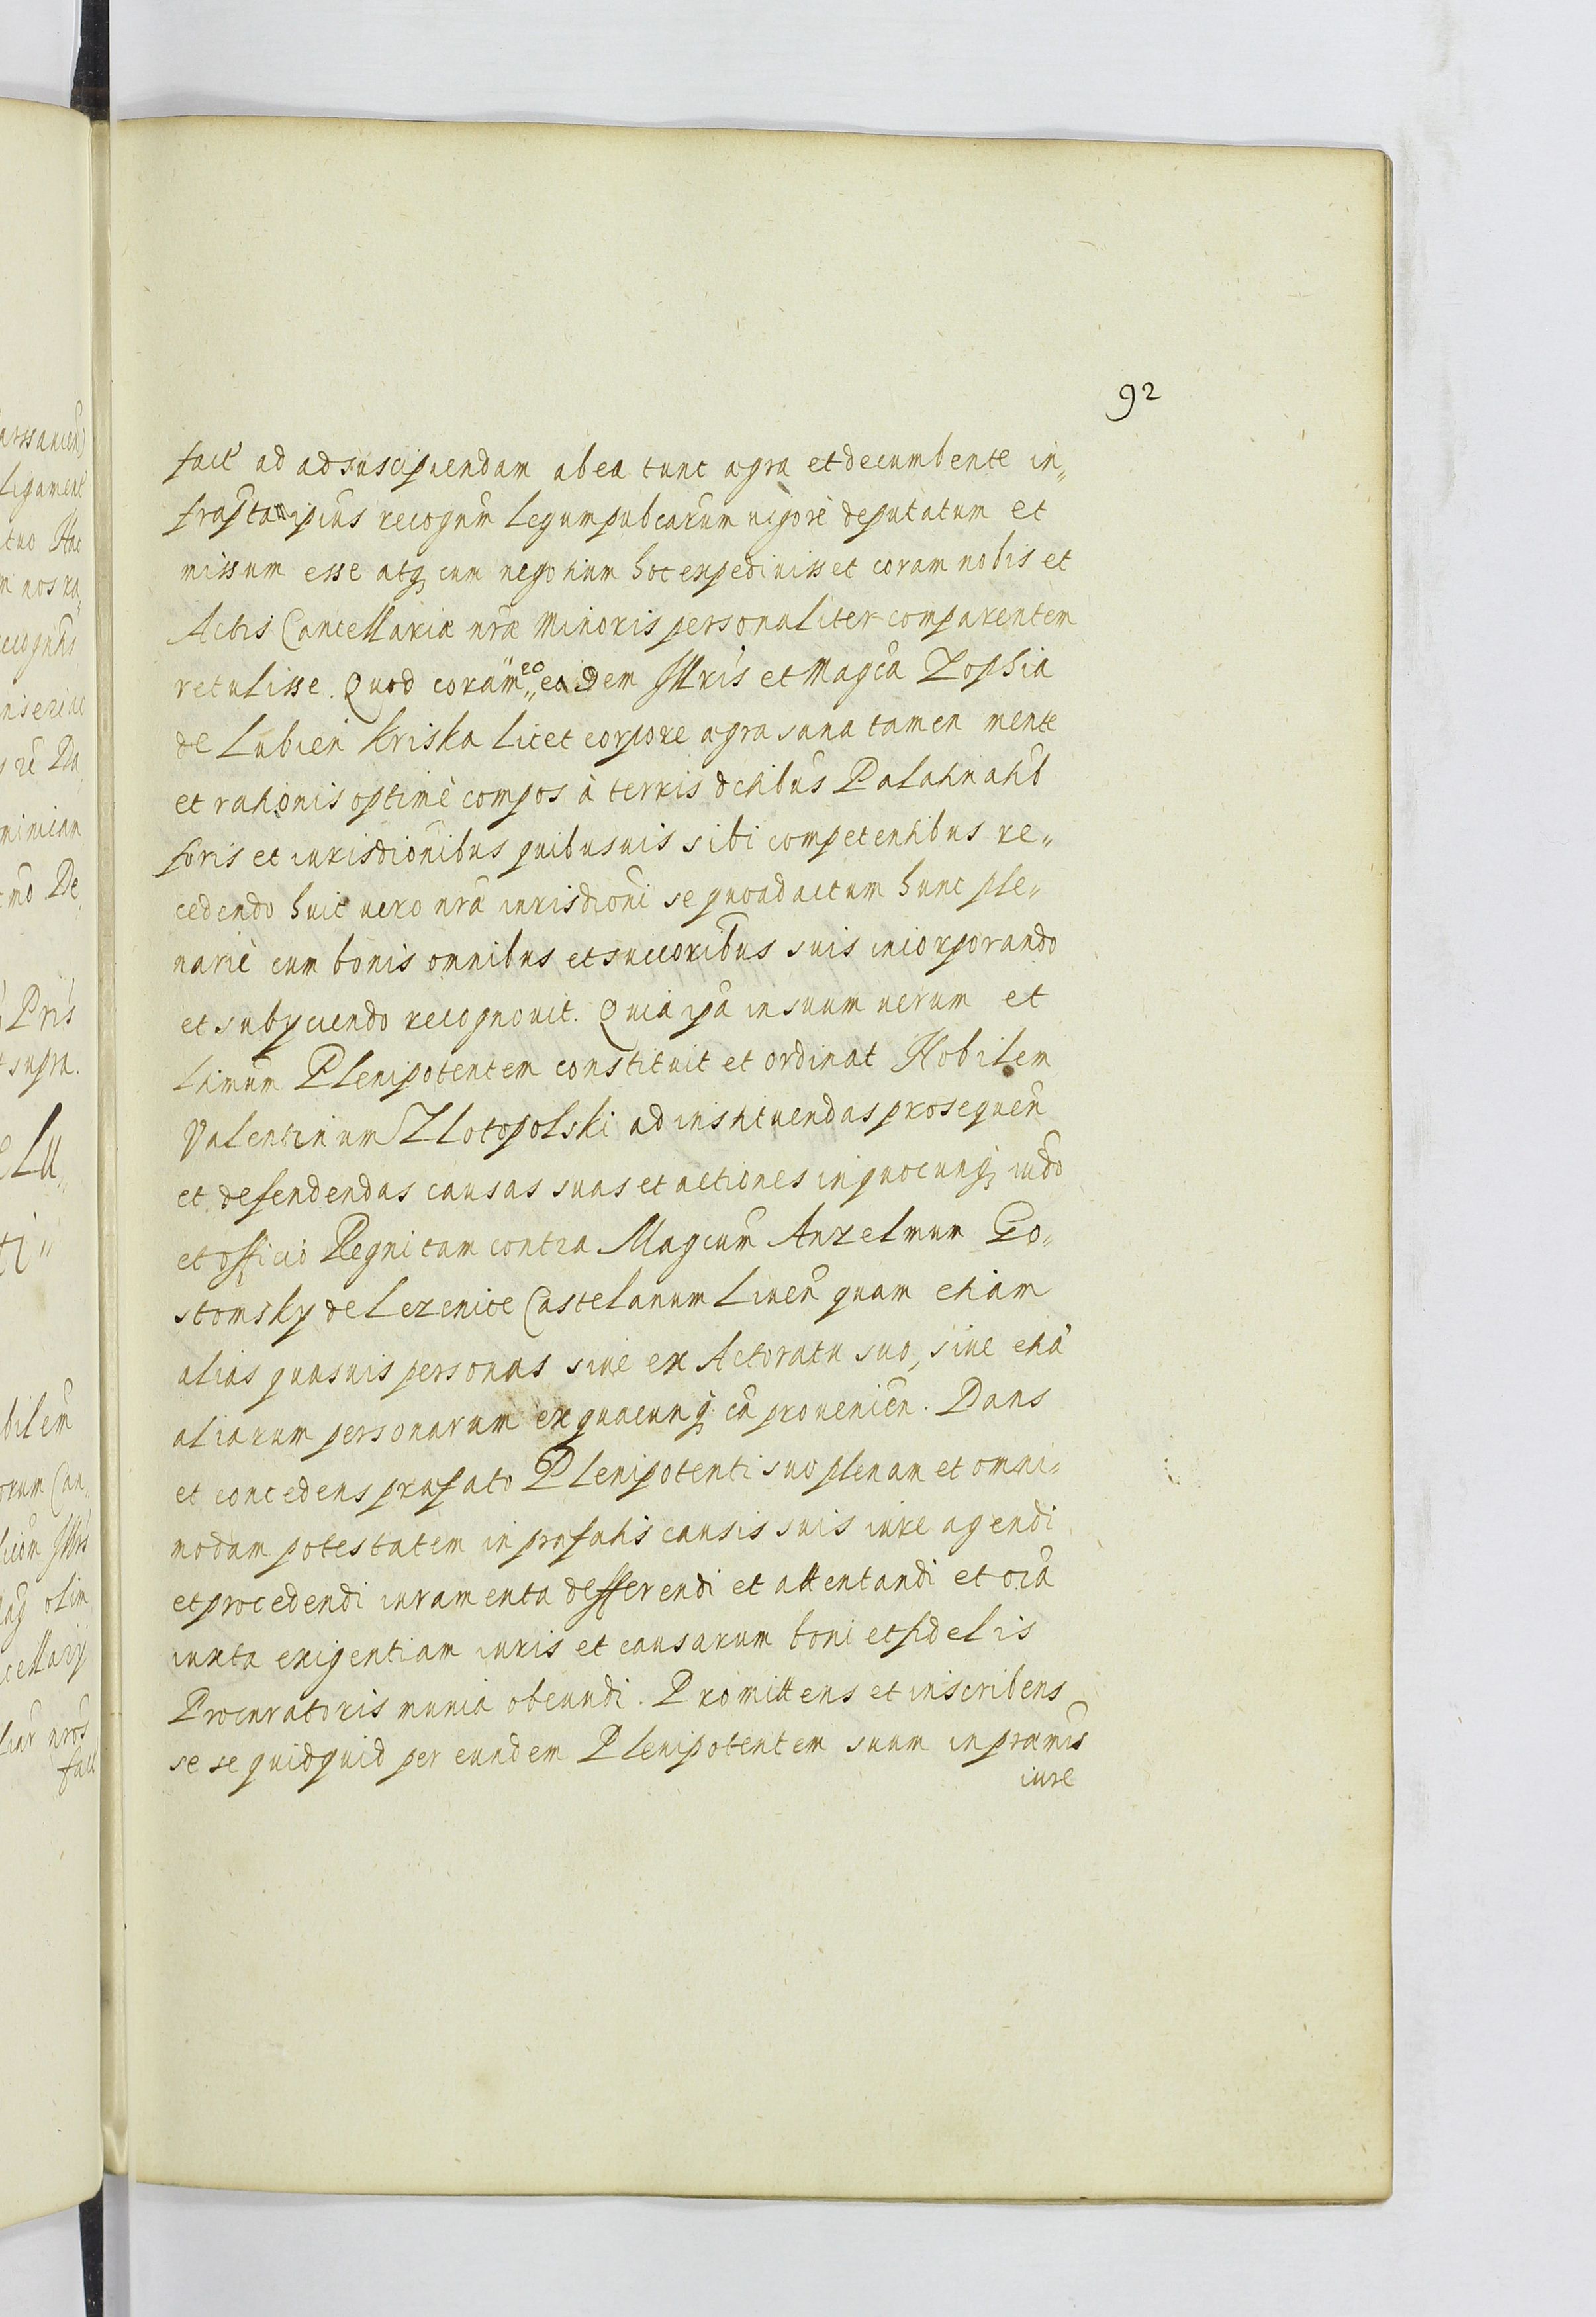 92
fact ad ad suscipiendam ab ea tunc ægra et decumbente in„
frapta ipius recognem legum pubcarum uigore deputatum et
missum esse atq cum negotium hoc expediuisset coram nobis et
Actis Cancellariæ nræ Minoris personaliter comparentem
retulisse. Quod coram eo eadem Illris et Magca Zophia
de Lubien Kriska licet corpore ægra sana tamen mente
et rationis optimè compos à terris dctibus Palatinatib
foris et iurisdionibus quibusuis sibi competentibus re„
cedendo huic uero nrã iurisdioni se quoad actum hunc ple„
narie cum bonis omnibus et succoribus suis incorporando
et subyciendo recognouit. Quia ipa in suum uerum et
ltimum Plenipotentem constituit et ordinat Nobilem
Valentinum Zlotopolski ad instituendas prosequen
et defendendas causas suas et actiones in quocunq iudo
et officio Regni tam contra Magcum Anzelmum Go„
stomsky de Lezenice Castelanum Liuen quam etiam
alias quasuis personas siue ex Actoratu suo, siue etiã
aliarum personarum ex quacunq cã prouenien. Dans
et concedens præfato Plenipotenti suo plenam et omni„
modam potestatem in præfatis causis suis iure agendi
et procedendi iuramenta defferendi et attentandi et oia
iuxta exigentiam iuris et causarum boni et fidelis
Procuratoris munia obeundi. Promittens et inscribens
se se quidquid per eundem Plenipotentem suum in præmis
iure